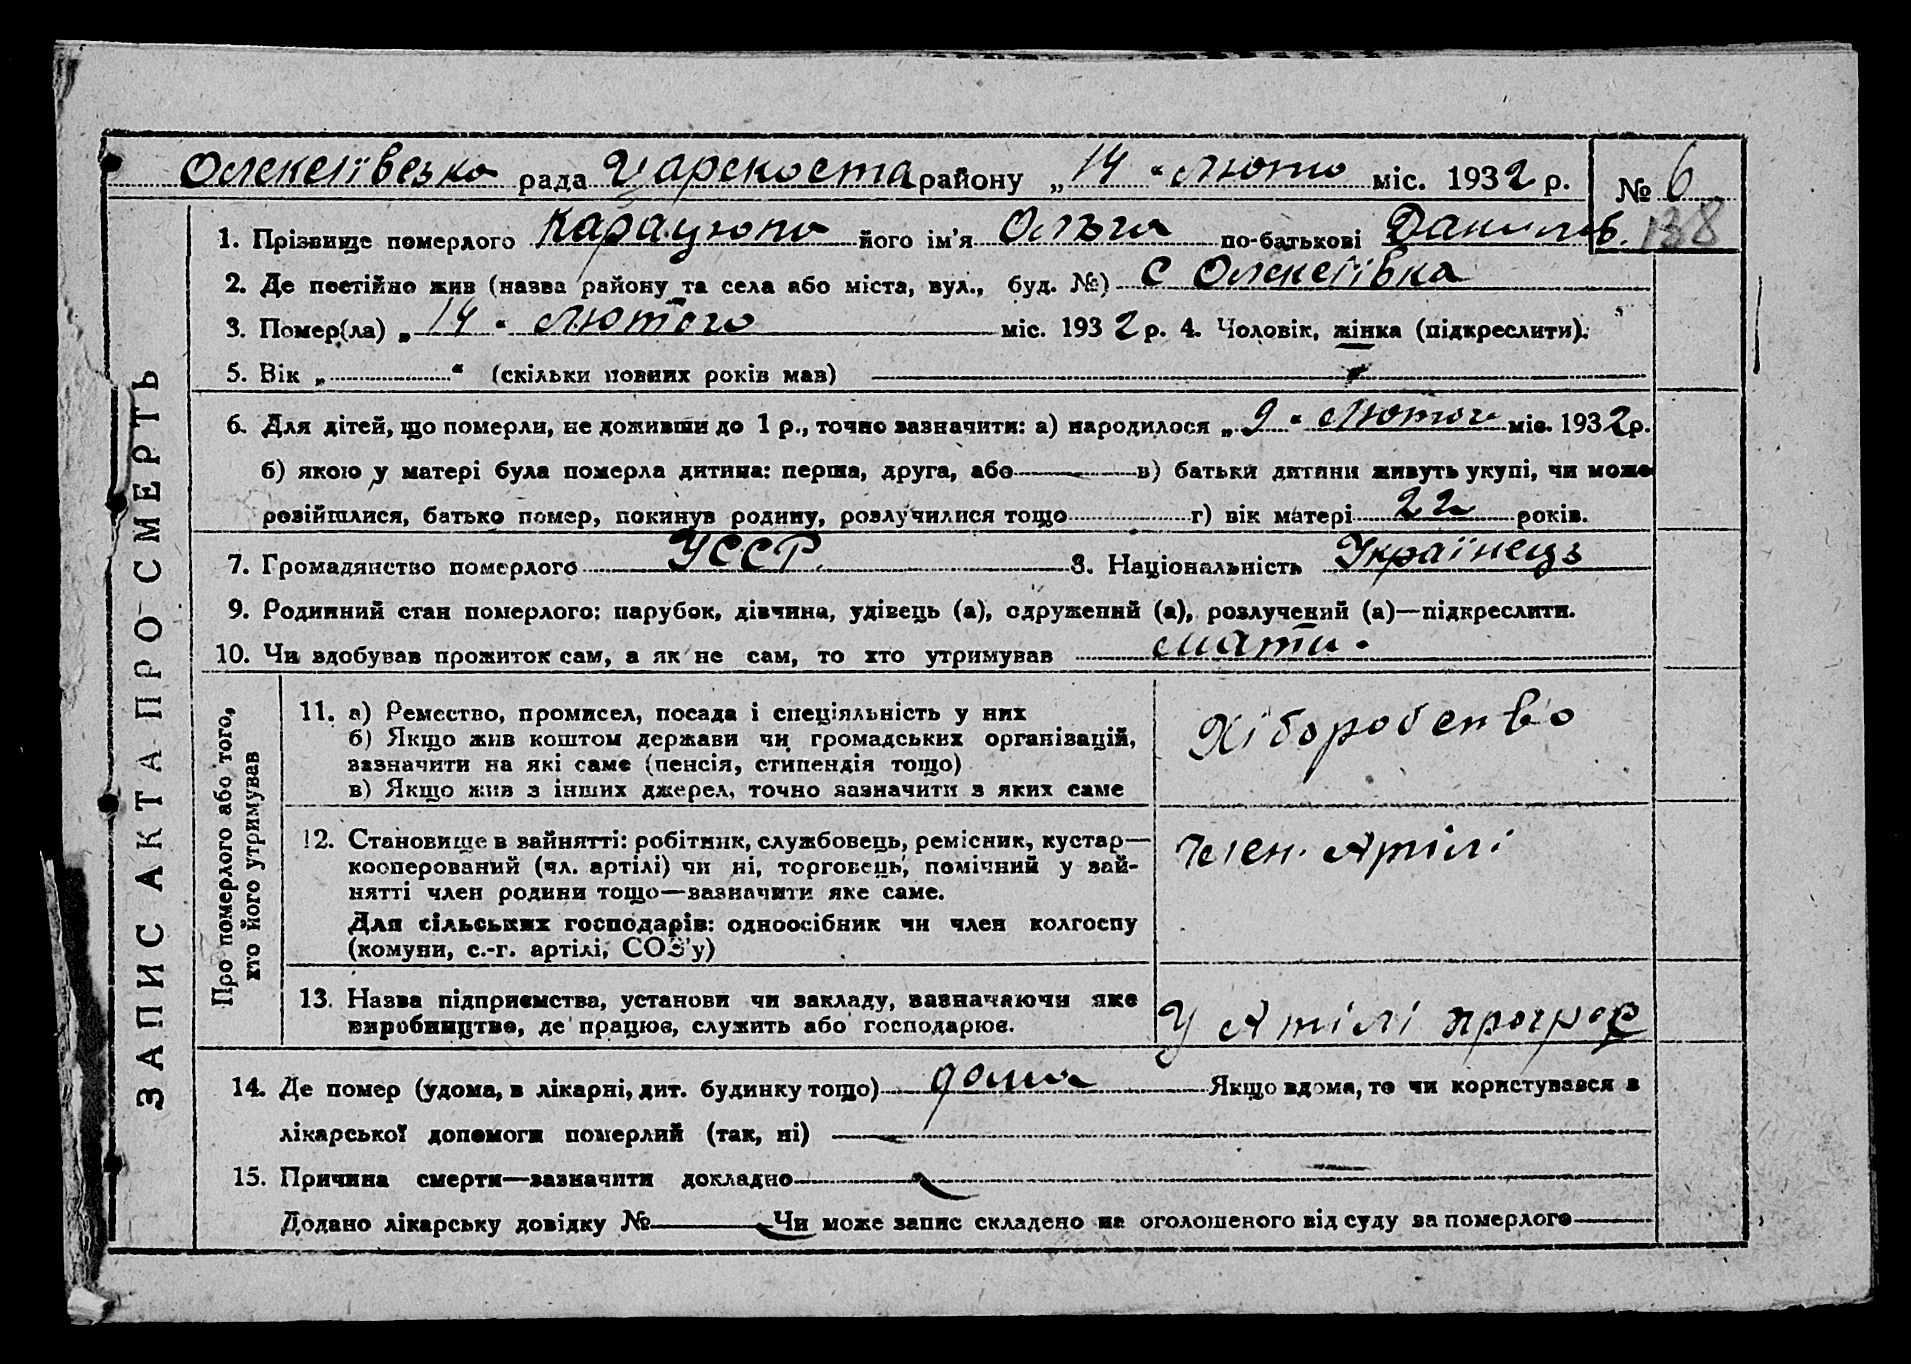 Олексіївсько рада Царекоста району „14“ Люто міс. 1932 р. № 6
138
1. Прізвище померлого Карацюпа його ім’я Ольга по-батькові Данилів.
2. Де постійно жив (назва району та села або міста, вул., буд. №) с Олексіївка
3. Помер(ла) „14“ Лютого міс. 1932 р. 4. Чоловік, жінка (підкреслити).
5. Вік „ “ (скільки повних років мав)
6. Для дітей, що померли, не доживши до 1 р., точно зазначити: а) народилося „9“ Лютог міс. 1932 р.
б) якою у матері була померла дитина: перша, друга, або в) батьки дитини живуть укупі, чи може
розійшлися, батько помер, покинув родину, розлучилися тощо г) вік матері 22 років.
7. Громадянство померлого УССР. 8. Національність Українець
9. Родинний стан померлого: парубок, дівчина, удівець (а), одружений (а), розлучений (а)—підкреслити.
10. Чи здобував прожиток сам, а як не сам, то хто утримував мати.
ЗАПИС АКТА ПРО СМЕРТЬ
Про померлого або того,
хто його утримував
11. а) Ремество, промисел, посада і спеціяльність у них
б) Якщо жив коштом держави чи громадських організацій,
зазначити на які саме (пенсія, стипендія тощо)
в) Якщо жив з інших джерел, точно зазначити з яких саме
Хіборобство
12. Становище в занятті: робітник, службовець, ремісник, кустар—
кооперований (чл. артілі) чи ні, торговець, помічний у зай-
нятті член родини тощо—зазначити яке саме.
Для сільських господарів: одноосібник чи член колгоспу
(комуни, с.-г. артілі, СОЗ’у)
член. Артілі
13. Назва підприємства, установи чи закладу, зазначаючи яке
виробництво, де працює, служить або господарює.
У Атілі прогрес
14. Де помер (удома, в лікарні, дит. будинку тощо) дома Якщо вдома, то чи користувався з
лікарської допомоги померлий (так, ні)
15. Причина смерти—зазначити докладно
Додано лікарську довідку № Чи може запис складено на оголошеного від суду за померлого